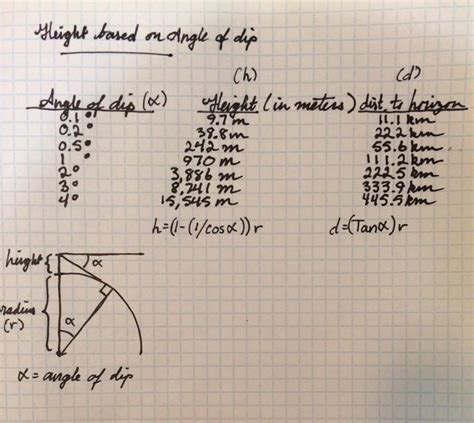 Height based on Angle of dip
(h) (d)
Angle of dip (α) Height (in meters) dist. to horizon
0.1° 9.7 m 11.1 km
0.2° 38.8 m 22.2 km
0.5° 242 m 55.6 km
1° 970 m 111.2 km
2° 3,886 m 222.5 km
3° 8,741 m 333.9 km
4° 15,545 m 445.5 km
h=(1-(1/cosα))r d=(Tanα)r
height α
radius
(r) α
α = angle of dip